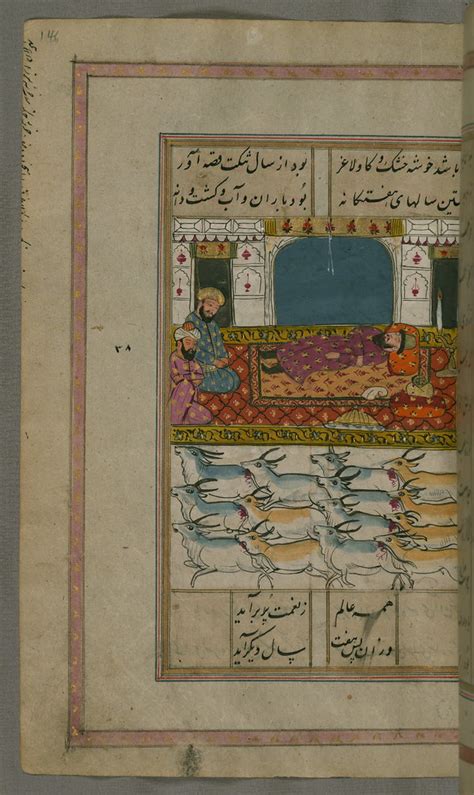 146
باشد خوشه خشک و کاو لاغر بود از سال تنکت قصه آور
سالهای هفتکانه بود باران و آب و کشت و دانه
٣٨
همه عالم ز نعمت پر برآید
وزان پس هفت سال دیکر آید